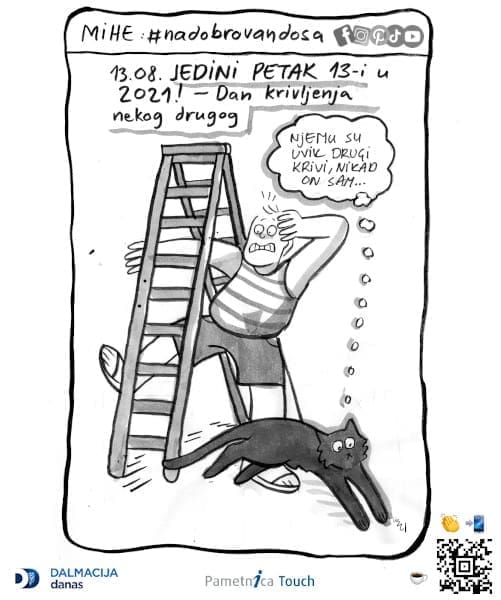 MiHE: #nadobrovandosa
13.08. JEDINI PETAK 13-i u
2021! – Dan krivljenja
nekog drugog
NJEMU SU
UVIK DRUGI
KRIVI, NIKAD
ON SAM...
DALMACIJA
danas
Pametnica Touch